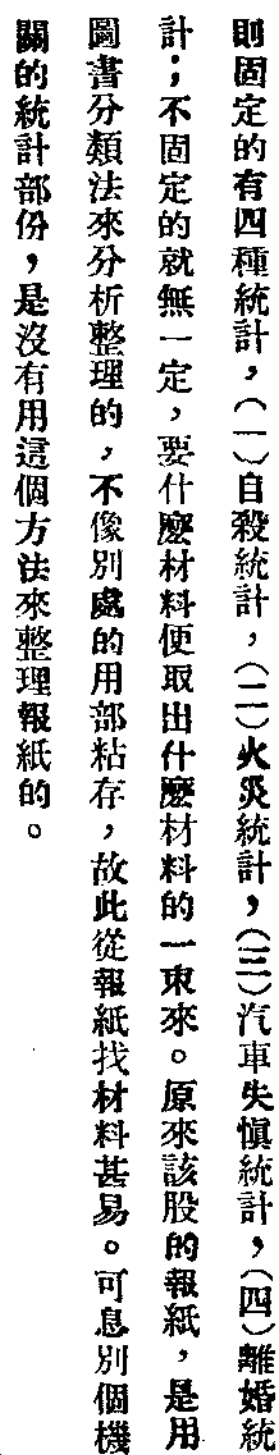 則固定的有四種統計，（一）自殺統計，（二）火災統計，（三）汽車失愼統計，（四）離婚統
計；不固定的就無一定，要什麽材料便取出什麽材料的一束來。原來該股的報紙，是用
圖書分類法來分析整理的，不像別處的用部粘存，故此從報紙找材料甚易。可息別個機
關的統計部份，是沒有用這個方法來整理報紙的。